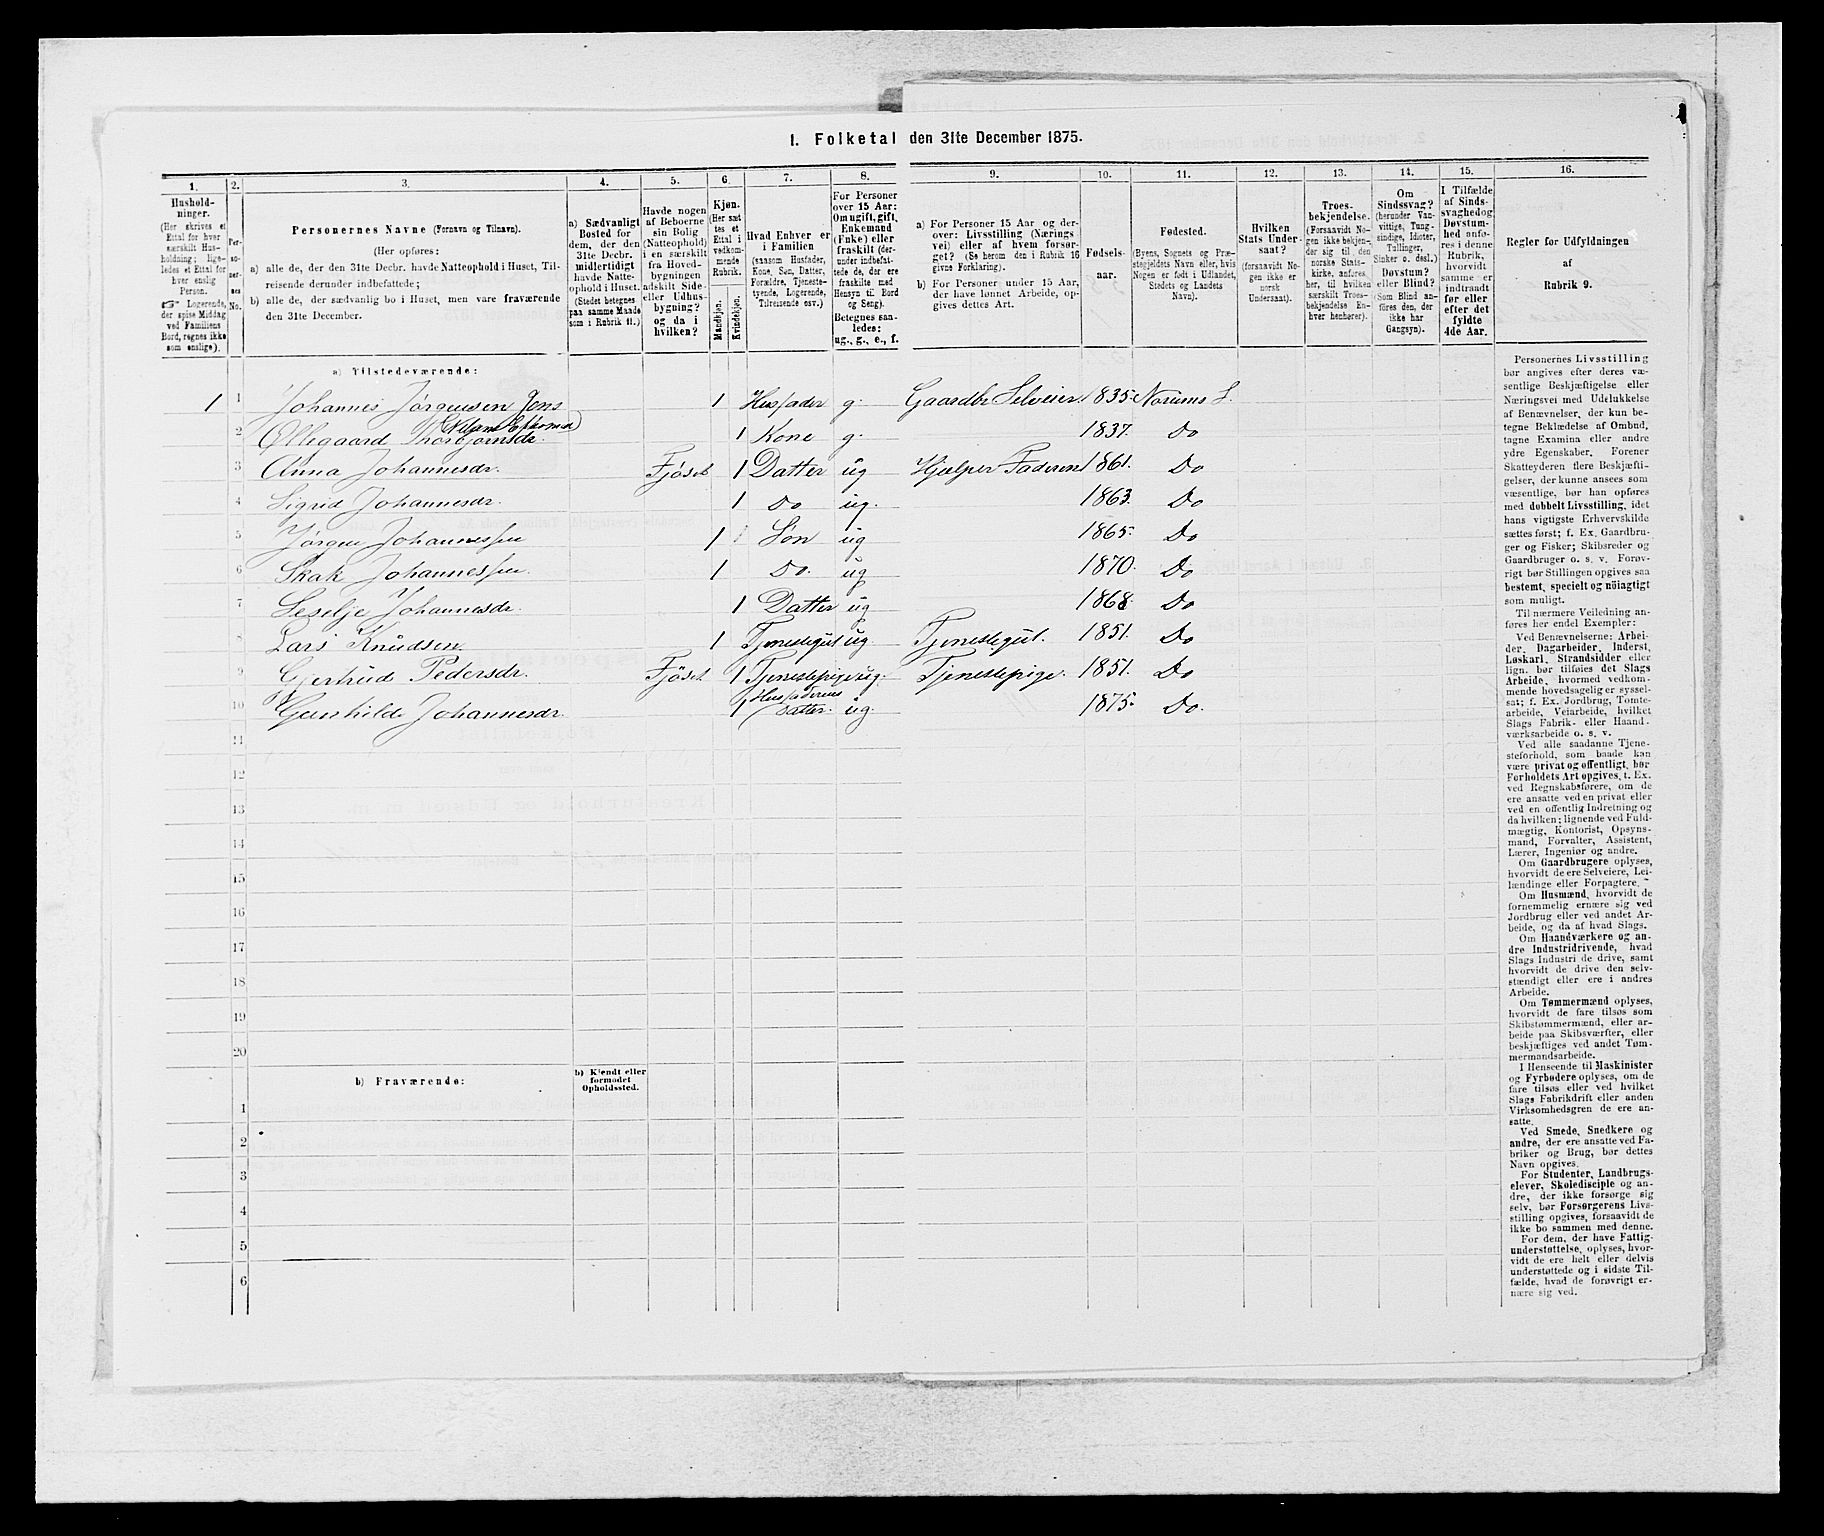 1. Folketal den 31te December 1875.
1. 2. 3. 4. 5. 6. 7. 8. 9. 10. 11. 12. 13. 14. 15. 16.
Hushold-
ninger.
(Her skrives et
Ettal for hver
særskilt Hus-
holdning; lige-
ledes et Ettal for
hver enslig
Person.
☞ Logerende,
der spise Middag
ved Familiens
Bord, regnes ikke
som enslige).
Per-
so-
ner-
nes
No.
Personernes Navne (Fornavn og Tilnavn).
(Her opføres:
a) alle de, der den 31te Decbr. havde Natteophold i Huset, Til-
reisende derunder indbefattede;
b) alle de, der sædvanlig bo i Huset, men vare fraværende
den 31te December.
a) Sædvanligt
Bosted for
dem, der den
31te Decbr.
midlertidigt
havde Natte-
ophold i Huset.
(Stedet betegnes
paa samme Maade
som i Rubrik 11.)
Havde nogen
af Beboerne
sin Bolig
(Natteophold)
i en særskilt
fra Hoved-
bygningen
adskilt Side-
eller Udhus-
bygning?
og da i
hvilken?
Kjøn.
(Her sæt
tes et
Ettal i
vedkom-
mende
Rubrik.
Mandkjøn.
Kvindekjøn.
Hvad Enhver er
i Familien
(saasom Husfader,
Kone, Søn, Datter,
Forældre, Tjeneste-
tyende, Logerende,
Tilreisende osv.)
For Personer
over 15 Aar:
Om ugift, gift,
Enkemand
(Enke) eller
fraskilt (der-
under indbefat-
tede de, der ere
fraskilte med
Hensyn til Bord
og Seng).
Betegnes saa-
ledes:
ug., g., e., f.
a) For Personer 15 Aar og der-
over: Livsstilling (Nærings
vei) eller af hvem forsør-
get? (Se herom den i Rubrik 16
givne Forklaring).
b) For Personer under 15 Aar,
der have lønnet Arbeide, op-
gives dettes Art.
Fødsels-
aar.
Fødested.
(Byens, Sognets og Præ-
stegjeldets Navn eller, hvis
Nogen er født i Udlandet,
Stedets og Landets
Navn).
Hvilken
Stats Under-
saat?
(forsaavidt No-
gen ikke er
norsk
Undersaat).
Troes-
bekjendelse.
(Forsaavidt No-
gen ikke bekjen-
der sig til den
norske Stats-
kirke, anføres
her, til hvilken
særskilt Troes-
bekjendelse En-
hver henhører).
Om
Sindssvag?
(herunder Van-
vittige, Tung-
sindige, Idioter,
Tullinger,
Sinker o. desl.)
Døvstum?
eller Blind?
(Som Blind an-
føres den, der
ikke har
Gangsyn).
I Tilfælde
af Sinds-
svaghed og
Døvstum-
hed anfø-
res i denne
Rubrik,
hvorvidt
samme er
indtraadt
før eller
efter det
fyldte
4de Aar.
Regler for Udfyldningen
af
Rubrik 9.
a) Tilstedeværende:
1 1 Johannes Jørgensen Jens 1 Husfader g. Gaardbr Selveier. 1835. Norums S.
2 Øllegaard Thorbjørnsdr. 1 Kone g. 1837. Do
3 Anna Johannesdr. Fjøset 1 Datter ug Hjelper Faderen 1861. Do
4 Sigrid Johannesdr. 1 Do ug. 1863. Do
5 Jørgen Johannessen 1 Søn ug 1865. Do
6 Skak Johannessen 1 Do. ug 1870. Do
7 Seselje Johannesdr. 1 Datter ug 1868. Do
8 Lars Knudsen. 1 Tjenestegut ug. Tjenestegut. 1851. Do
9 Gjertrud Pedersdr. Fjøset 1 Tjenestepige ug. Tjenestepige. 1851. Do
10 Gunhilde Johannesdr. 1 Husfaderens Datter. ug. 1875. Do.
11
12
13
14
15
16
17
18
19
20
b) Fraværende:
b) Kjendt eller
formodet
Opholdssted.
1
2
3
4
5
6
Personernes Livsstilling
bør angives efter deres væ-
sentlige Beskjæftigelse eller
Næringsvei med Udelukkelse
af Benævnelser, der kun be-
tegne Beklædelse af Ombud,
tagne Examina eller andre
ydre Egenskaber. Forener
Skatteyderen flere Beskjæfti-
gelser, der kunne ansees som
væsentlige, bør han opføres
med dobbelt Livsstilling, idet
hans vigtigste Erhvervskilde
sættes først; f. Ex. Gaardbru-
ger og Fisker; Skibsreder og
Gaardbruger o. s. v. Forøv-
rigt bør Stillingen opgives saa
bestemt, specielt og nöiagtigt
som muligt.
Til nærmere Veiledning an-
føres her endel Exempler:
Ved Benævnelserne: Arbei-
der, Dagarbeider, Inderst,
Løskarl, Strandsidder eller
lign. bør tilføies det Slags
Arbeide, hvormed vedkom-
mende hovedsagelig er syssel-
sat; f. Ex. Jordbrug, Tomte-
arbeide, Veiarbeide, hvilket
Slags Fabrik- eller Haand-
værksarbeide o. s. v.
Ved alle saadanne Tjene-
steforhold, som baade kan
være privat og offentligt, bør
Forholdets Art opgives, t. Ex.
ved Regnskabsførere, om de
ere ansatte ved en privat eller
ved en offentlig Indretning og
da hvilken; lignende ved Fuld-
mægtig, Kontorist, Opsyns-
mand, Forvalter, Assistent,
Lærer, Ingeniør og andre.
Om Gaardbrugere oplyses,
hvorvidt de ere Selveiere, Lei-
lændinge eller Forpagtere.
Om Husmænd, hvorvidt de
fornemmelig ernære sig ved
Jordbrug eller ved andet Ar-
beide, og da af hvad Slags.
Om Haandværkere og an-
dre Industridrivende, hvad
Slags Industri de drive, samt
hvorvidt de drive den selv-
stændigt eller ere i andres
Arbeide.
Om Tømmermænd oplyses,
hvorvidt de fare tilsøs som
Skibstømmermænd, eller ar-
beide paa Skibsværfter, eller
beskjæftiges ved andet Tøm-
mermandsarbeide.
I Henseende til Maskinister
og Fyrbødere oplyses, om de
fare tilsøs eller ved hvilket
Slags Fabrikdrift eller anden
Virksomhedsgren de ere an-
satte.
Ved Smede, Snedkere og
andre, der ere ansatte ved Fa-
briker og Brug, bør dettes
Navn opgives.
For Studenter, Landbrugs-
elever, Skoledisciple og an-
dre, der ikke forsørge sig
selv, bør Forsørgerens Livs-
stilling opgives, forsaavidt de
ikke bo sammen med denne.
For dem, der have Fattig-
understøttelse, oplyses, hvor-
vidt de ere helt eller delvis
understøttede og i sidste Til-
fælde, hvad de forøvrigt er-
nære sig ved.